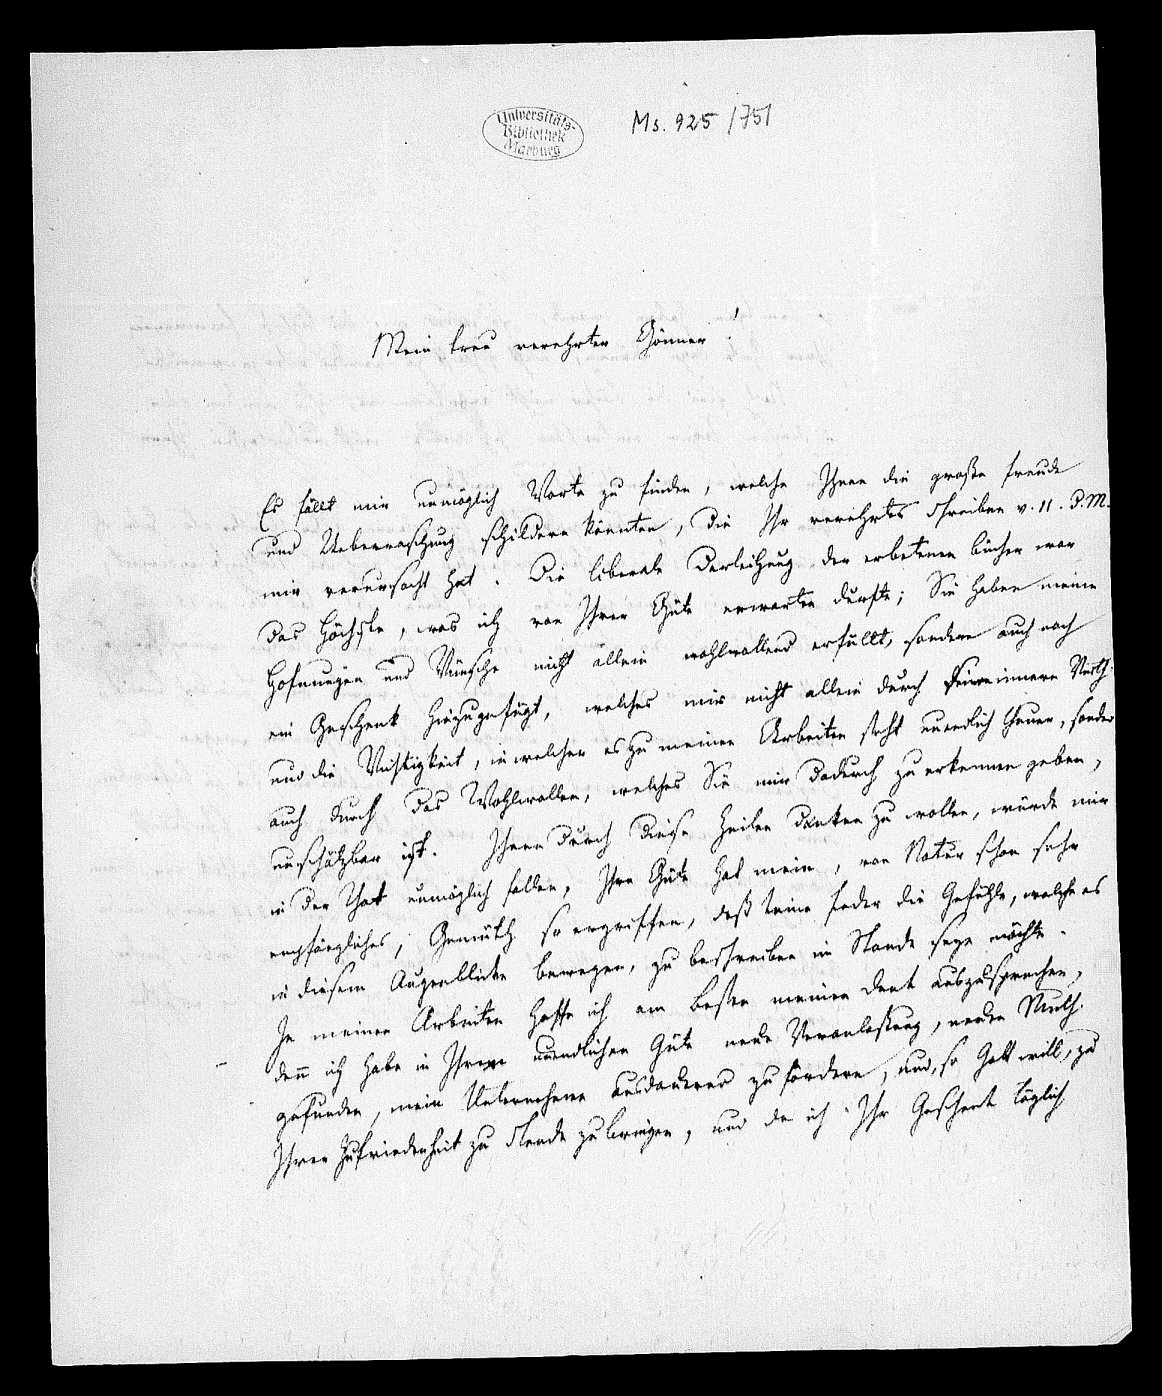 Universitäts-
Bibliothek
Marburg
Ms. 925/751
Mein treu verehrter Gönner!
Es fällt mir unmöglich Worte zu finden, welche Ihnen die große Freude
und Ueberraschung schildern könnten, die Ihr verehrtes Schreiben v. 11. d. M.
mir verursacht hat. Die liberale Darleihung der erbetenen Bücher war
das Höchste, was ich von Ihrer Güte erwarten durfte; Sie haben meine
Hofnungen und Wünsche nicht allein wohlwollend erfüllt, sondern auch noch
ein Geschenk hinzugefügt, welches mir nicht allein durch inneren Werth
und die Wichtigkeit, in welcher es zu meinen Arbeiten steht unendlich theuer, sondern
auch durch das Wohlwollen, welches Sie mir dadurch zu erkennen geben,
unschätzbar ist. Ihnen durch diese Zeilen danken zu wollen, würde mir
in der That unmöglich fallen, Ihre Güte hat mein, von Natur schon sehr
empfängliches, Gemüth so ergriffen, daß keine Feder die Gefühle, welche es
in diesem Augenblicke bewegen, zu beschreiben im Stande seyn möchte.
In meinen Arbeiten hoffe ich am besten meinen Dank auszusprechen,
denn ich habe in Ihrer unendlichen Güte neue Veranlaßung, neuen Muth
gefunden, mein Unternehmen ausdauernd zu fördern, und, so Gott will, zu
Ihrer Zufriedenheit zu Stande zu bringen, und da ich Ihr Geschenk täglich